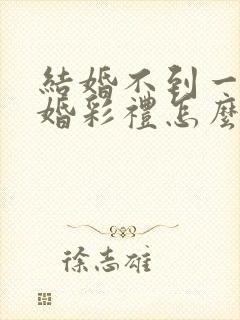 結婚不到一
婚彩禮怎麼
徐志雄